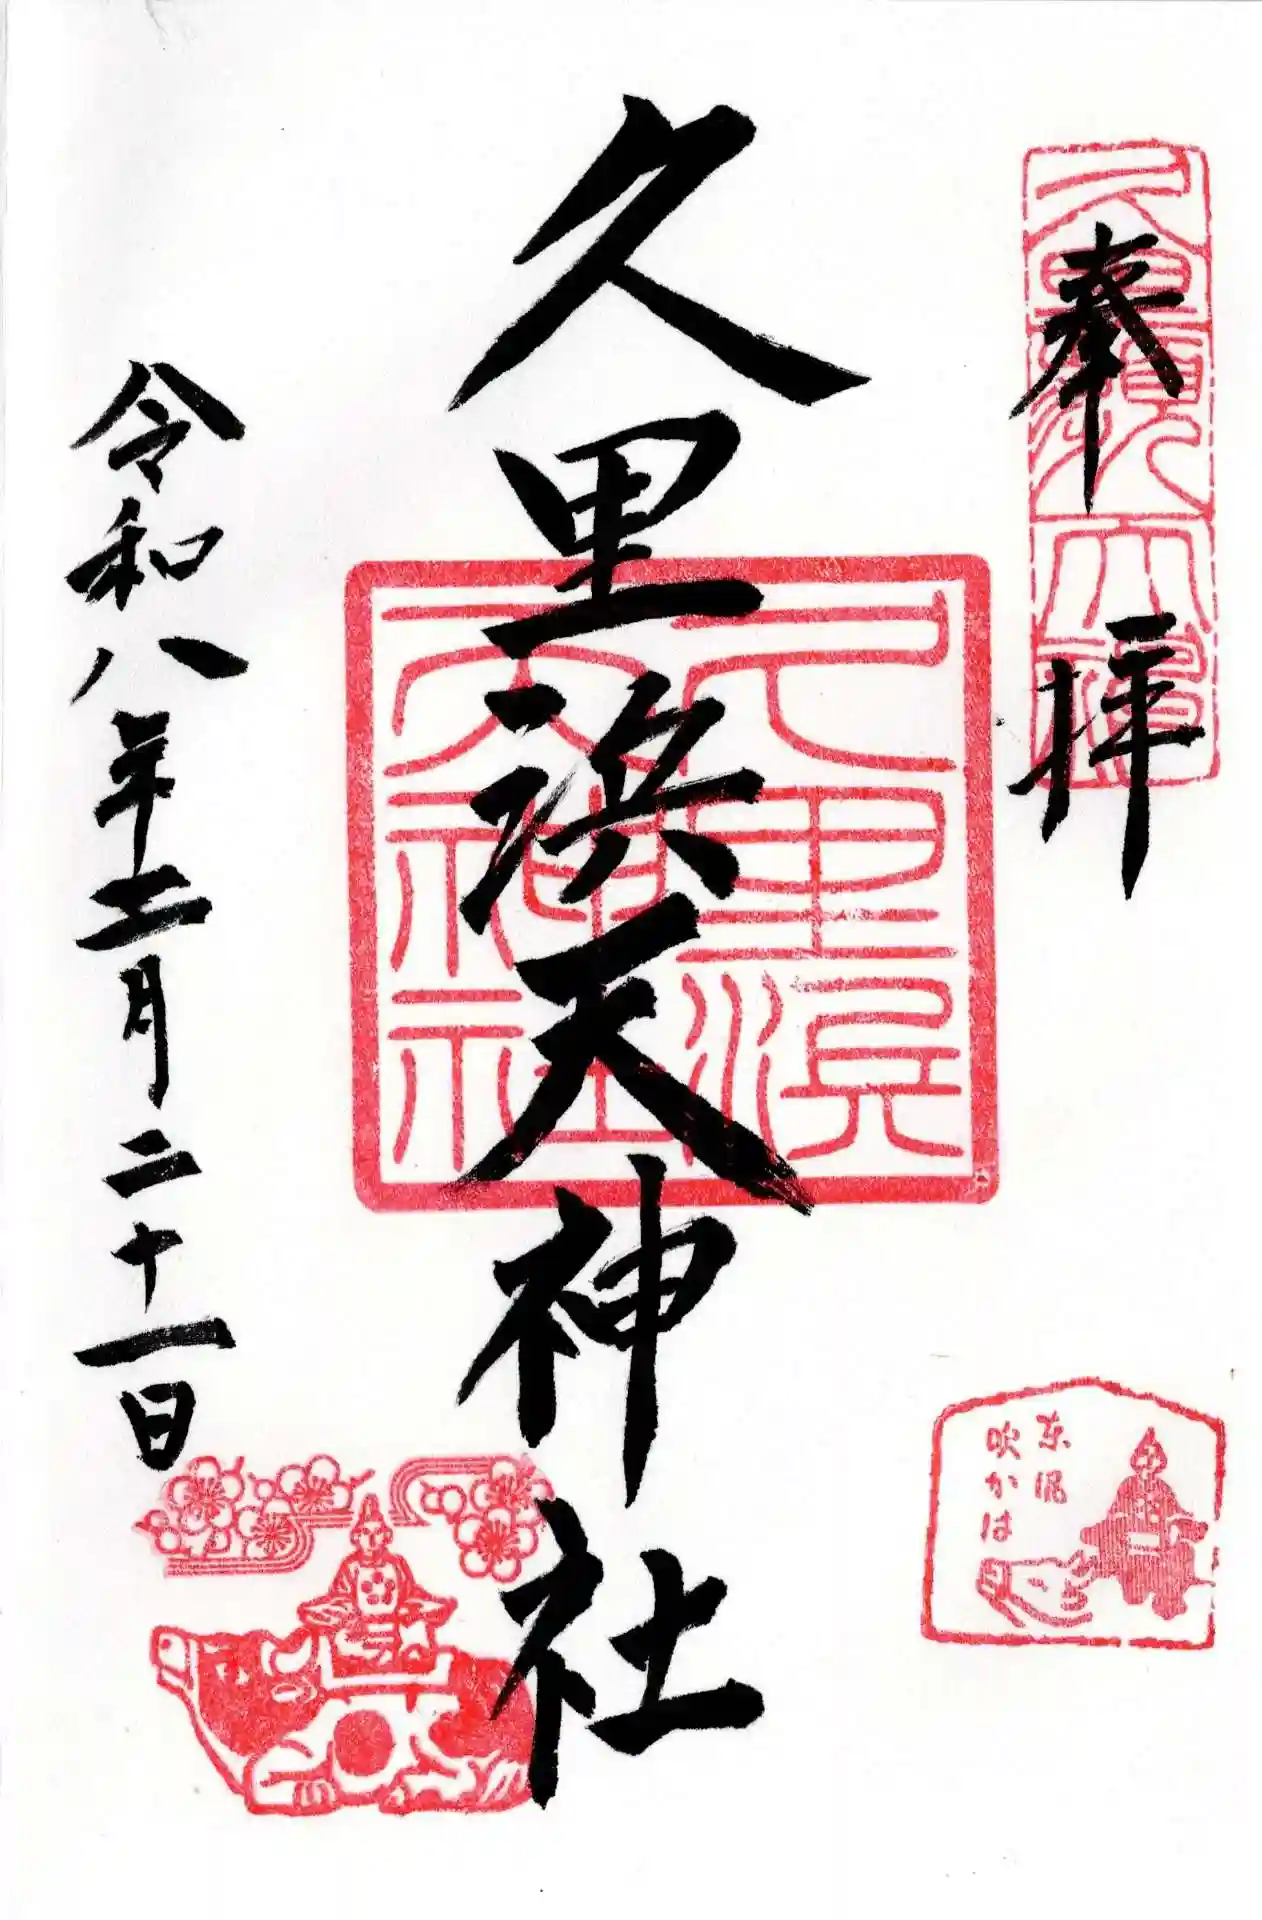 奉拝
久里浜天神社
令和八年二月二十一日
久里濱天神社
東風
吹かは